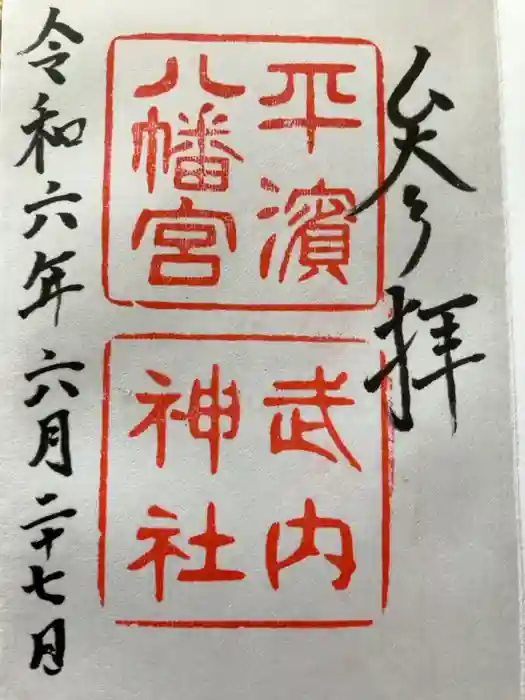 参拝
平濱
八幡宮
武内
神社
令和六年六月二十七日